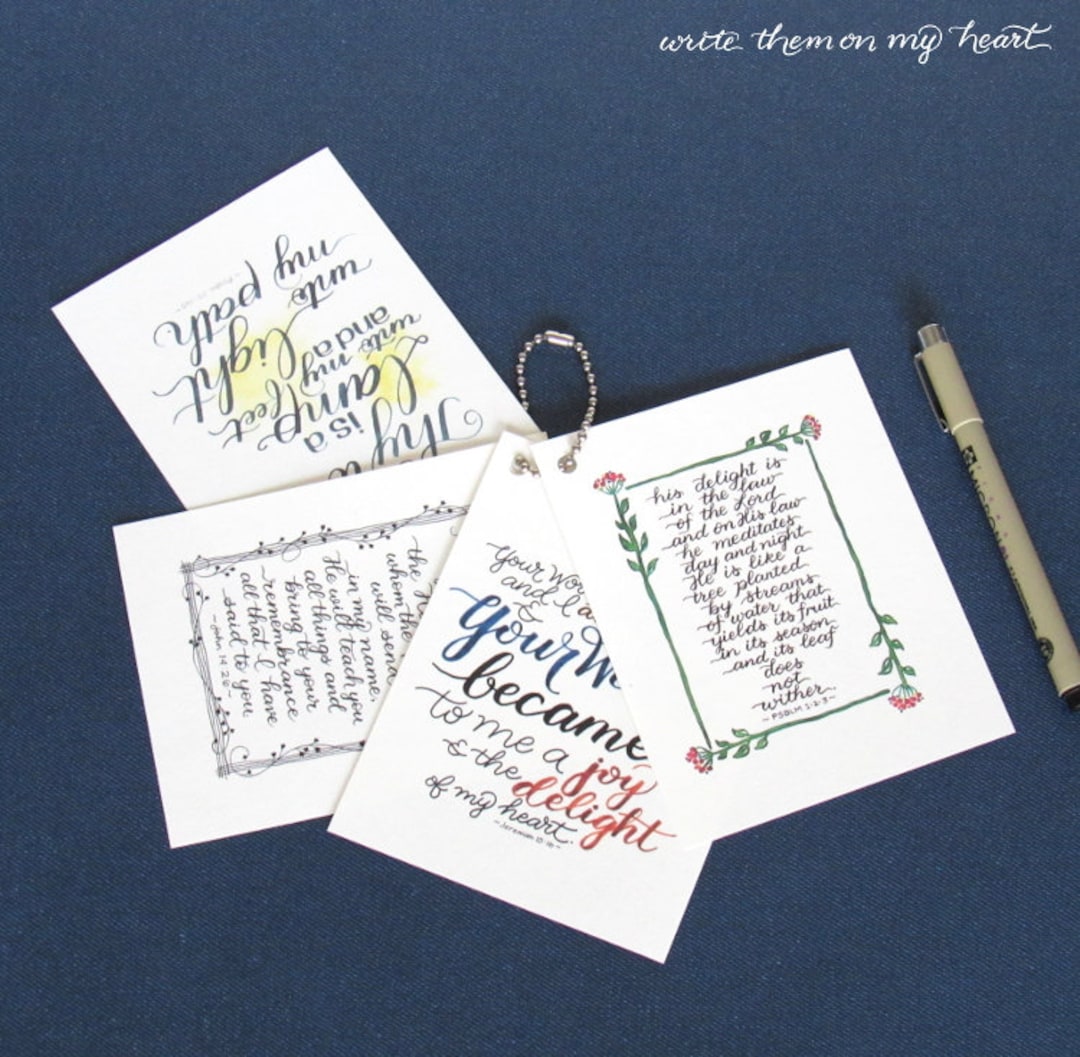 write them on my heart
Thy
is a
lamp
unto my feet
and a
light
unto
my path.
the
whom the
will send
in my name,
He will teach you
all things and
bring to your
remembrance
all that I have
said to you.
~John 14:26~
your wor
and I a
&
your w
became
to me a joy
& the delight
of my heart.
~Jeremiah 15:16~
his delight is
in the law
of the Lord
and on His law
he meditates
day and night
He is like a
tree planted
by streams
of water that
yields its fruit
in its season
and its leaf
does
not
wither.
~PSALM 1:2-3~